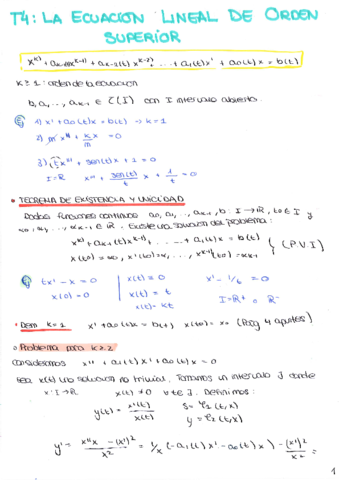 T4: LA ECUACION LINEAL DE ORDEN
SUPERIOR
x^(k) + a_{k-1}(t)x^(k-1) + a_{k-2}(t)x^(k-2) + ... + a_1(t)x' + a_0(t)x = b(t)
k ≥ 1: orden de la ecuación
b, a_0, ..., a_{k-1} ∈ C(I) con I intervalo abierto.
Ej 1) x' + a_0(t)x = b(t) → k = 1
2) m x'' + k x = 0
3) t x'' + sen(t)x + 1 = 0
I = R x'' + sen(t)/t x + 1/t = 0
• TEOREMA DE EXISTENCIA Y UNICIDAD
Dadas funciones continuas a_0, a_1, ..., a_{k-1}, b: I → R, t_0 ∈ I y
α_0, α_1, ..., α_{k-1} ∈ R. Existe una solución del problema:
x^(k) + a_{k-1}(t)x^(k-1) + ... + a_1(t)x = b(t)
x(t_0) = α_0, x'(t_0) = α_1, ..., x^(k-1)(t_0) = α_{k-1}
(P.V.I)
Ej tx' - x = 0 x(t) = 0 x' - 1/t = 0
x(0) = 0 x(t) = t I = R+ o R-
x(t) = kt
• Dem k=1 x' + a_0(t)x = b(t) x(t_0) = x_0 (Pag 4 apuntes)
• Problema para k≥2
Consideramos x'' + a_1(t)x' + a_0(t)x = 0
Sea x(t) una solución no trivial. Tomamos un intervalo J donde
x: I → R x(t) ≠ 0 ∀ t ∈ J. Definimos:
y(t) = x'(t)/x(t) s = φ_1(t,x)
y = φ_2(t,x)
y' = x''x - (x')²/x² = 1/x (-a_1(t)x' - a_0(t)x) - (x')²/x² =
1